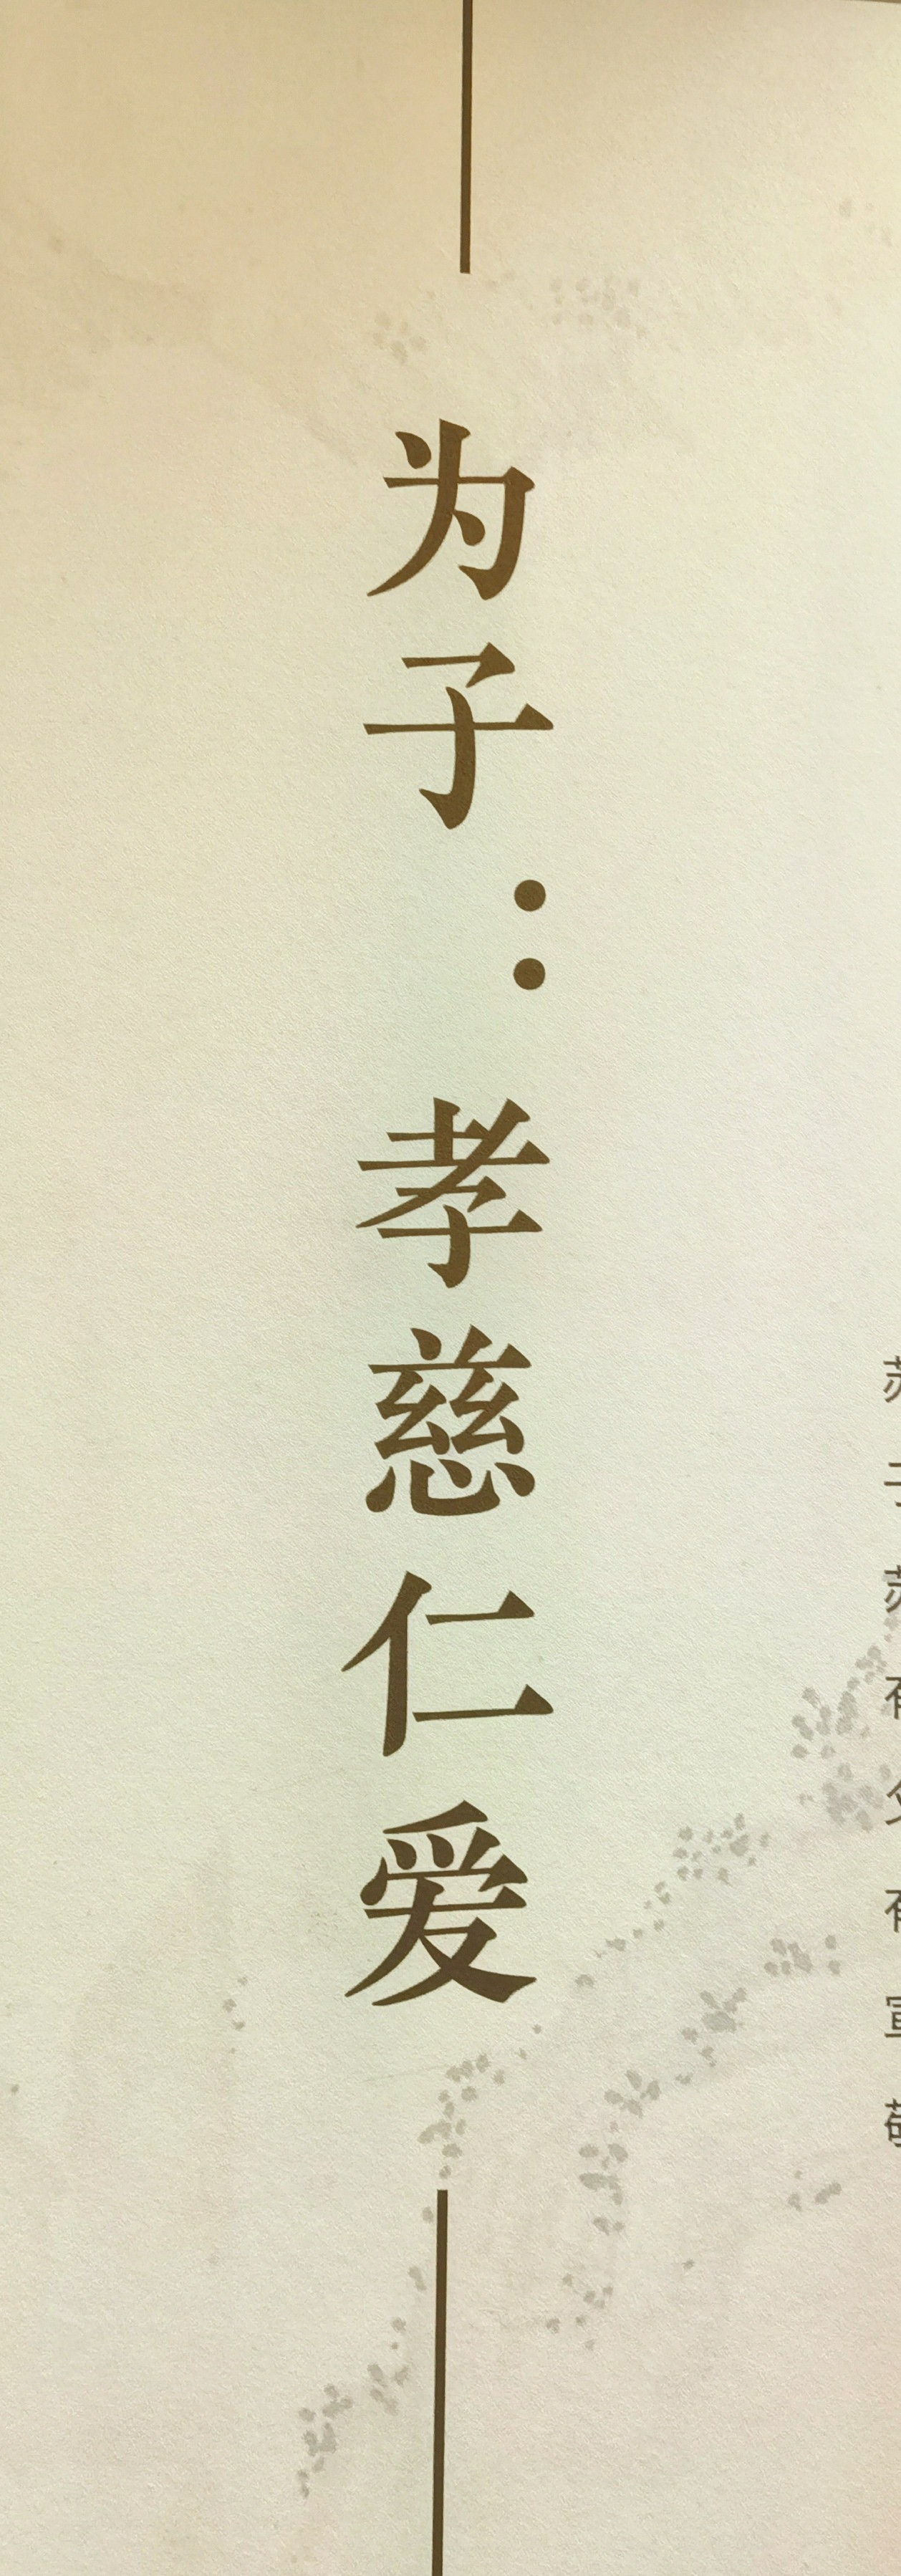 为子：孝慈仁爱